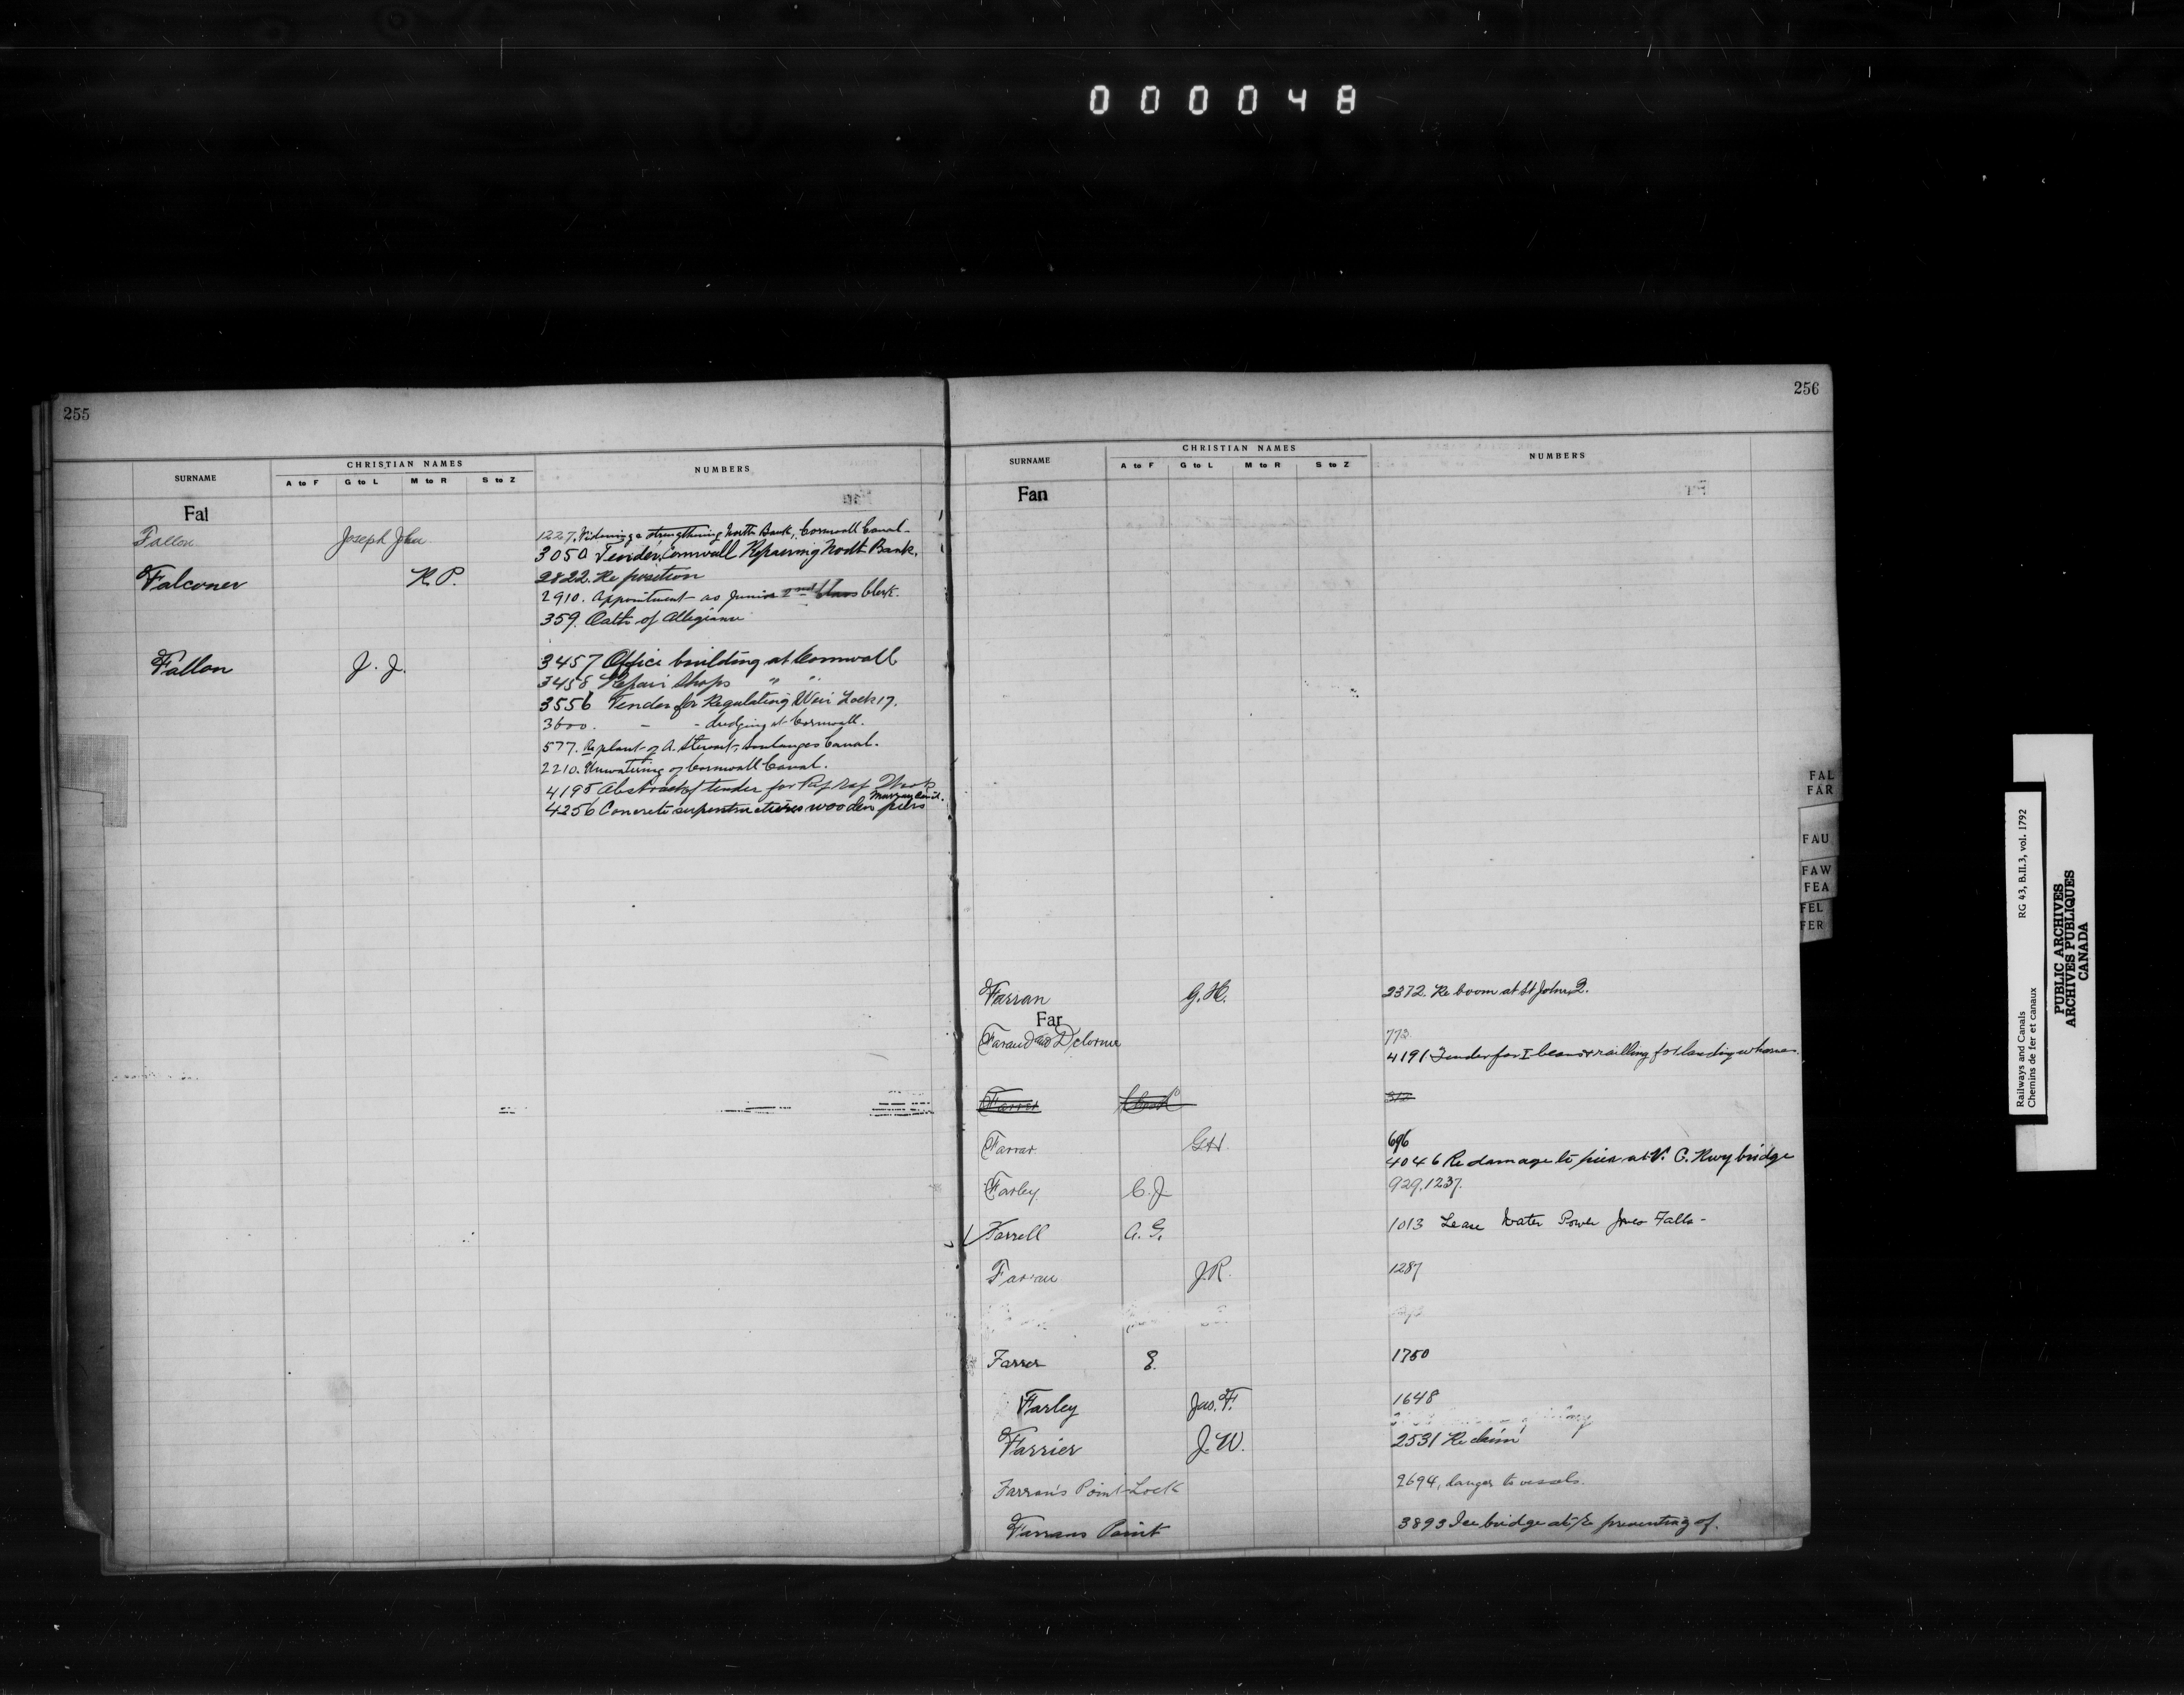 000048
255
CHRISTIAN NAMES
SURNAME A to F G to L M to R S to Z NUMBERS
Fal
Fallon Joseph John 1227. Widening & strengthening North Bank, Cornwall Canal-
3050 Tender, Cornwall Repairing North Bank.
Falconer R. P. 2822. Re position
2910. Appointment as Junior 2nd Class Clerk.
359. Oath of Allegiance
Fallon J. J. 3457 Office building at Cornwall
3458 Repair Shops " "
3556 Tender for Regulating Weir Lock 17.
3600. - - dredging at Cornwall.
577. Re plant of A. Stewart, Soulanges Canal.
2210. Unwatering of Cornwall Canal.
4195 Abstract of tender for Rip Rap Work
Murray Canal.
4256 Concrete superstructures wooden piers
256
CHRISTIAN NAMES
SURNAME A to F G to L M to R S to Z NUMBERS
Fan
Farran G. H. 2372. Re boom at St Johns Q.
Far
Faraud and Delorme 772
4191 Tender for I beams & railling for landing wharves.
Farrer 312
Farrar G H. 696
4046 Re damage to pier at V. C. Rwy bridge
Farley C. J 929. 1237.
Farrell A. G. 1013 Lease Water Power Jones Falls-
Farran J. R. 1287
Farrer E. 1750
Farley Jas. F. 1648
Farrier J. W. 2531 Re claim
Farran's Point Lock 2694, danger to vessels.
Farrans Point 3893 Ice bridge at re preventing of.
FAL
FAR
FAU
FAW
FEA
FEL
FER
Railways and Canals RG 43, B.II.3, vol. 1792
Chemins de fer et canaux
PUBLIC ARCHIVES
ARCHIVES PUBLIQUES
CANADA